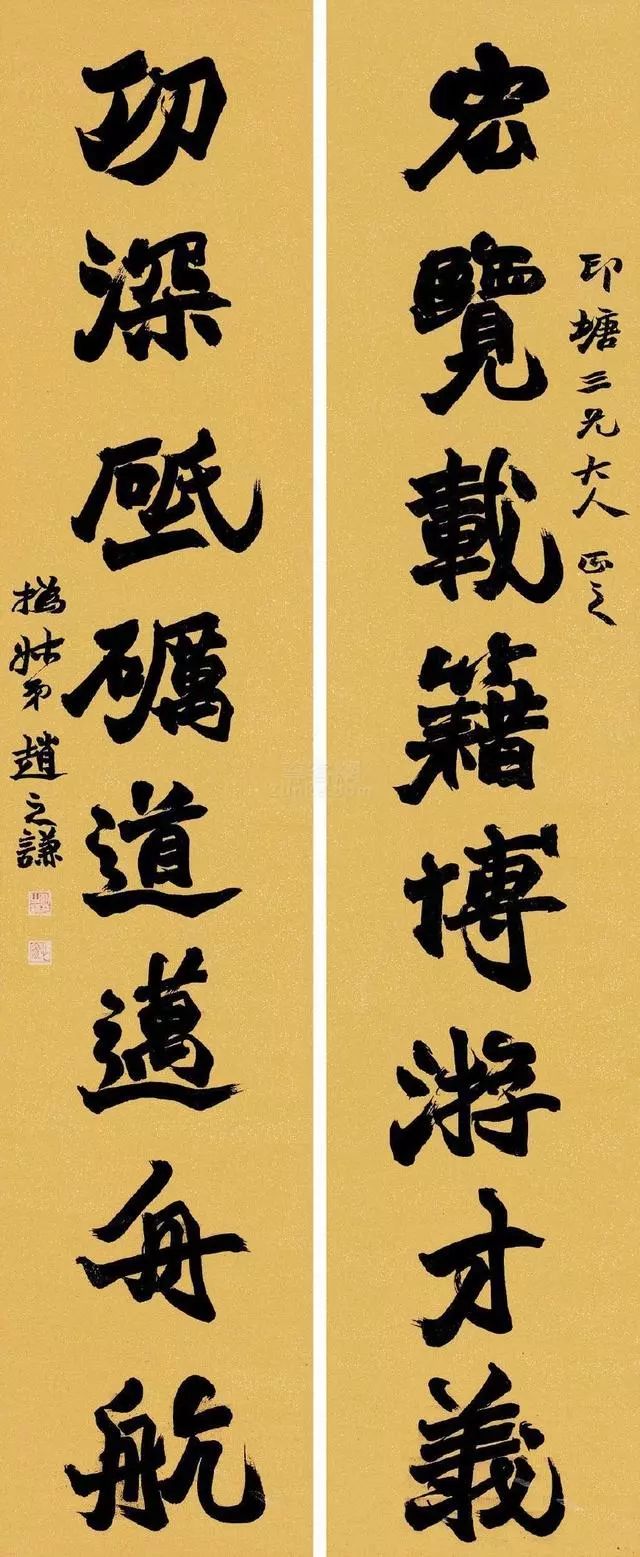 宏覽載籍博游才義
印塘三兄大人正之
功深砥礪道邁舟航
撝叔弟趙之謙